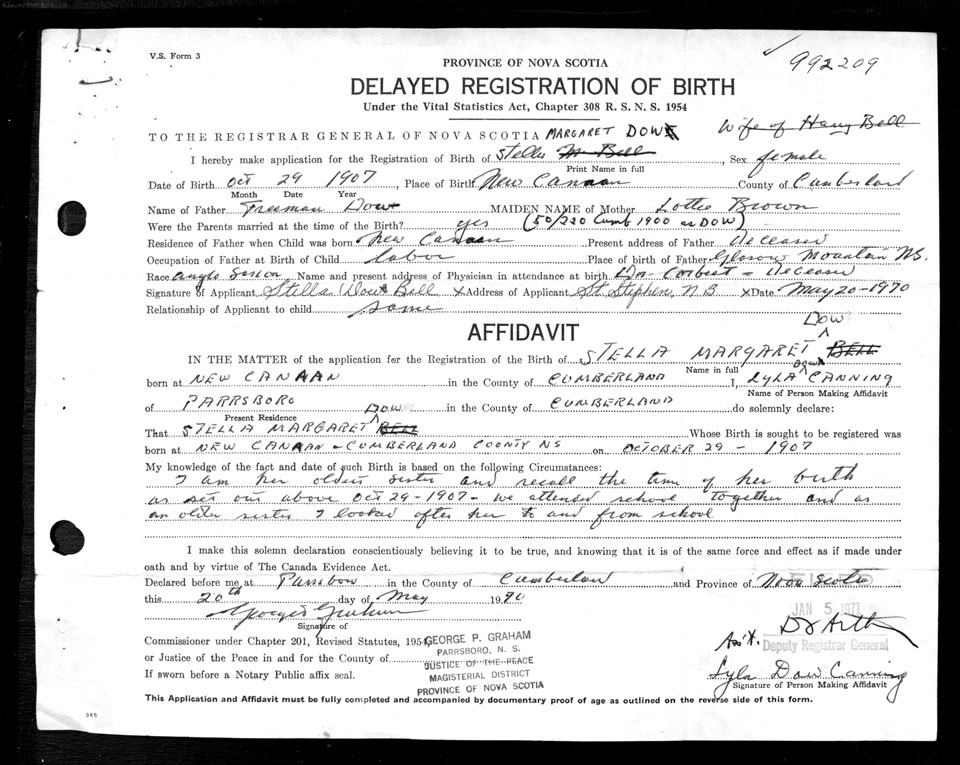 V.S. Form 3
992209
PROVINCE OF NOVA SCOTIA
DELAYED REGISTRATION OF BIRTH
Under the Vital Statistics Act, Chapter 308 R. S. N. S. 1954
Wife of Harry Bell
TO THE REGISTRAR GENERAL OF NOVA SCOTIA MARGARET DOW
I hereby make application for the Registration of Birth of Stella M Bell, Sex female
Print Name in full
Date of Birth Oct 29 1907, Place of Birth New Canaan County of Cumberland
Month Date Year
Name of Father Freeman Dow MAIDEN NAME of Mother Lottie Brown
Were the Parents married at the time of the Birth? yes (50/220 Cumb 1900 as DOW)
Residence of Father when Child was born New Canaan Present address of Father deceased
Occupation of Father at Birth of Child labor Place of birth of Father Mountain NS.
Race anglo Saxon Name and present address of Physician in attendance at birth Dr. Corbett - deceased
Signature of Applicant Stella Dow Bell X Address of Applicant St. Stephen, N.B X Date May 20-1970
Relationship of Applicant to child same
AFFIDAVIT
DOW
IN THE MATTER of the application for the Registration of the Birth of STELLA MARGARET BELL
Name in full
DOW
born at NEW CANAAN in the County of CUMBERLAND I, LYLA CANNING
Name of Person Making Affidavit
of PARRSBORO in the County of CUMBERLAND do solemnly declare:
Present Residence
DOW
That STELLA MARGARET BELL Whose Birth is sought to be registered was
born at NEW CANAAN - CUMBERLAND COUNTY NS on OCTOBER 29 - 1907
My knowledge of the fact and date of such Birth is based on the following Circumstances:
I am her older sister and recall the time of her birth
as set out above Oct 29-1907- we attended school together and as
an older sister I looked after her to and from school
I make this solemn declaration conscientiously believing it to be true, and knowing that it is of the same force and effect as if made under
oath and by virtue of The Canada Evidence Act.
Declared before me at Parrsboro in the County of Cumberland and Province of Nova Scotia
this 20th day of May 1970
JAN 5 1971
George P Graham
Signature of
Commissioner under Chapter 201, Revised Statutes, 1954,
or Justice of the Peace in and for the County of
If sworn before a Notary Public affix seal.
GEORGE P. GRAHAM
PARRSBORO, N. S.
JUSTICE OF THE PEACE
MAGISTERIAL DISTRICT
PROVINCE OF NOVA SCOTIA
Ass't. Deputy Registrar General
Lyla Dow Canning
Signature of Person Making Affidavit
This Application and Affidavit must be fully completed and accompanied by documentary proof of age as outlined on the reverse side of this form.
385